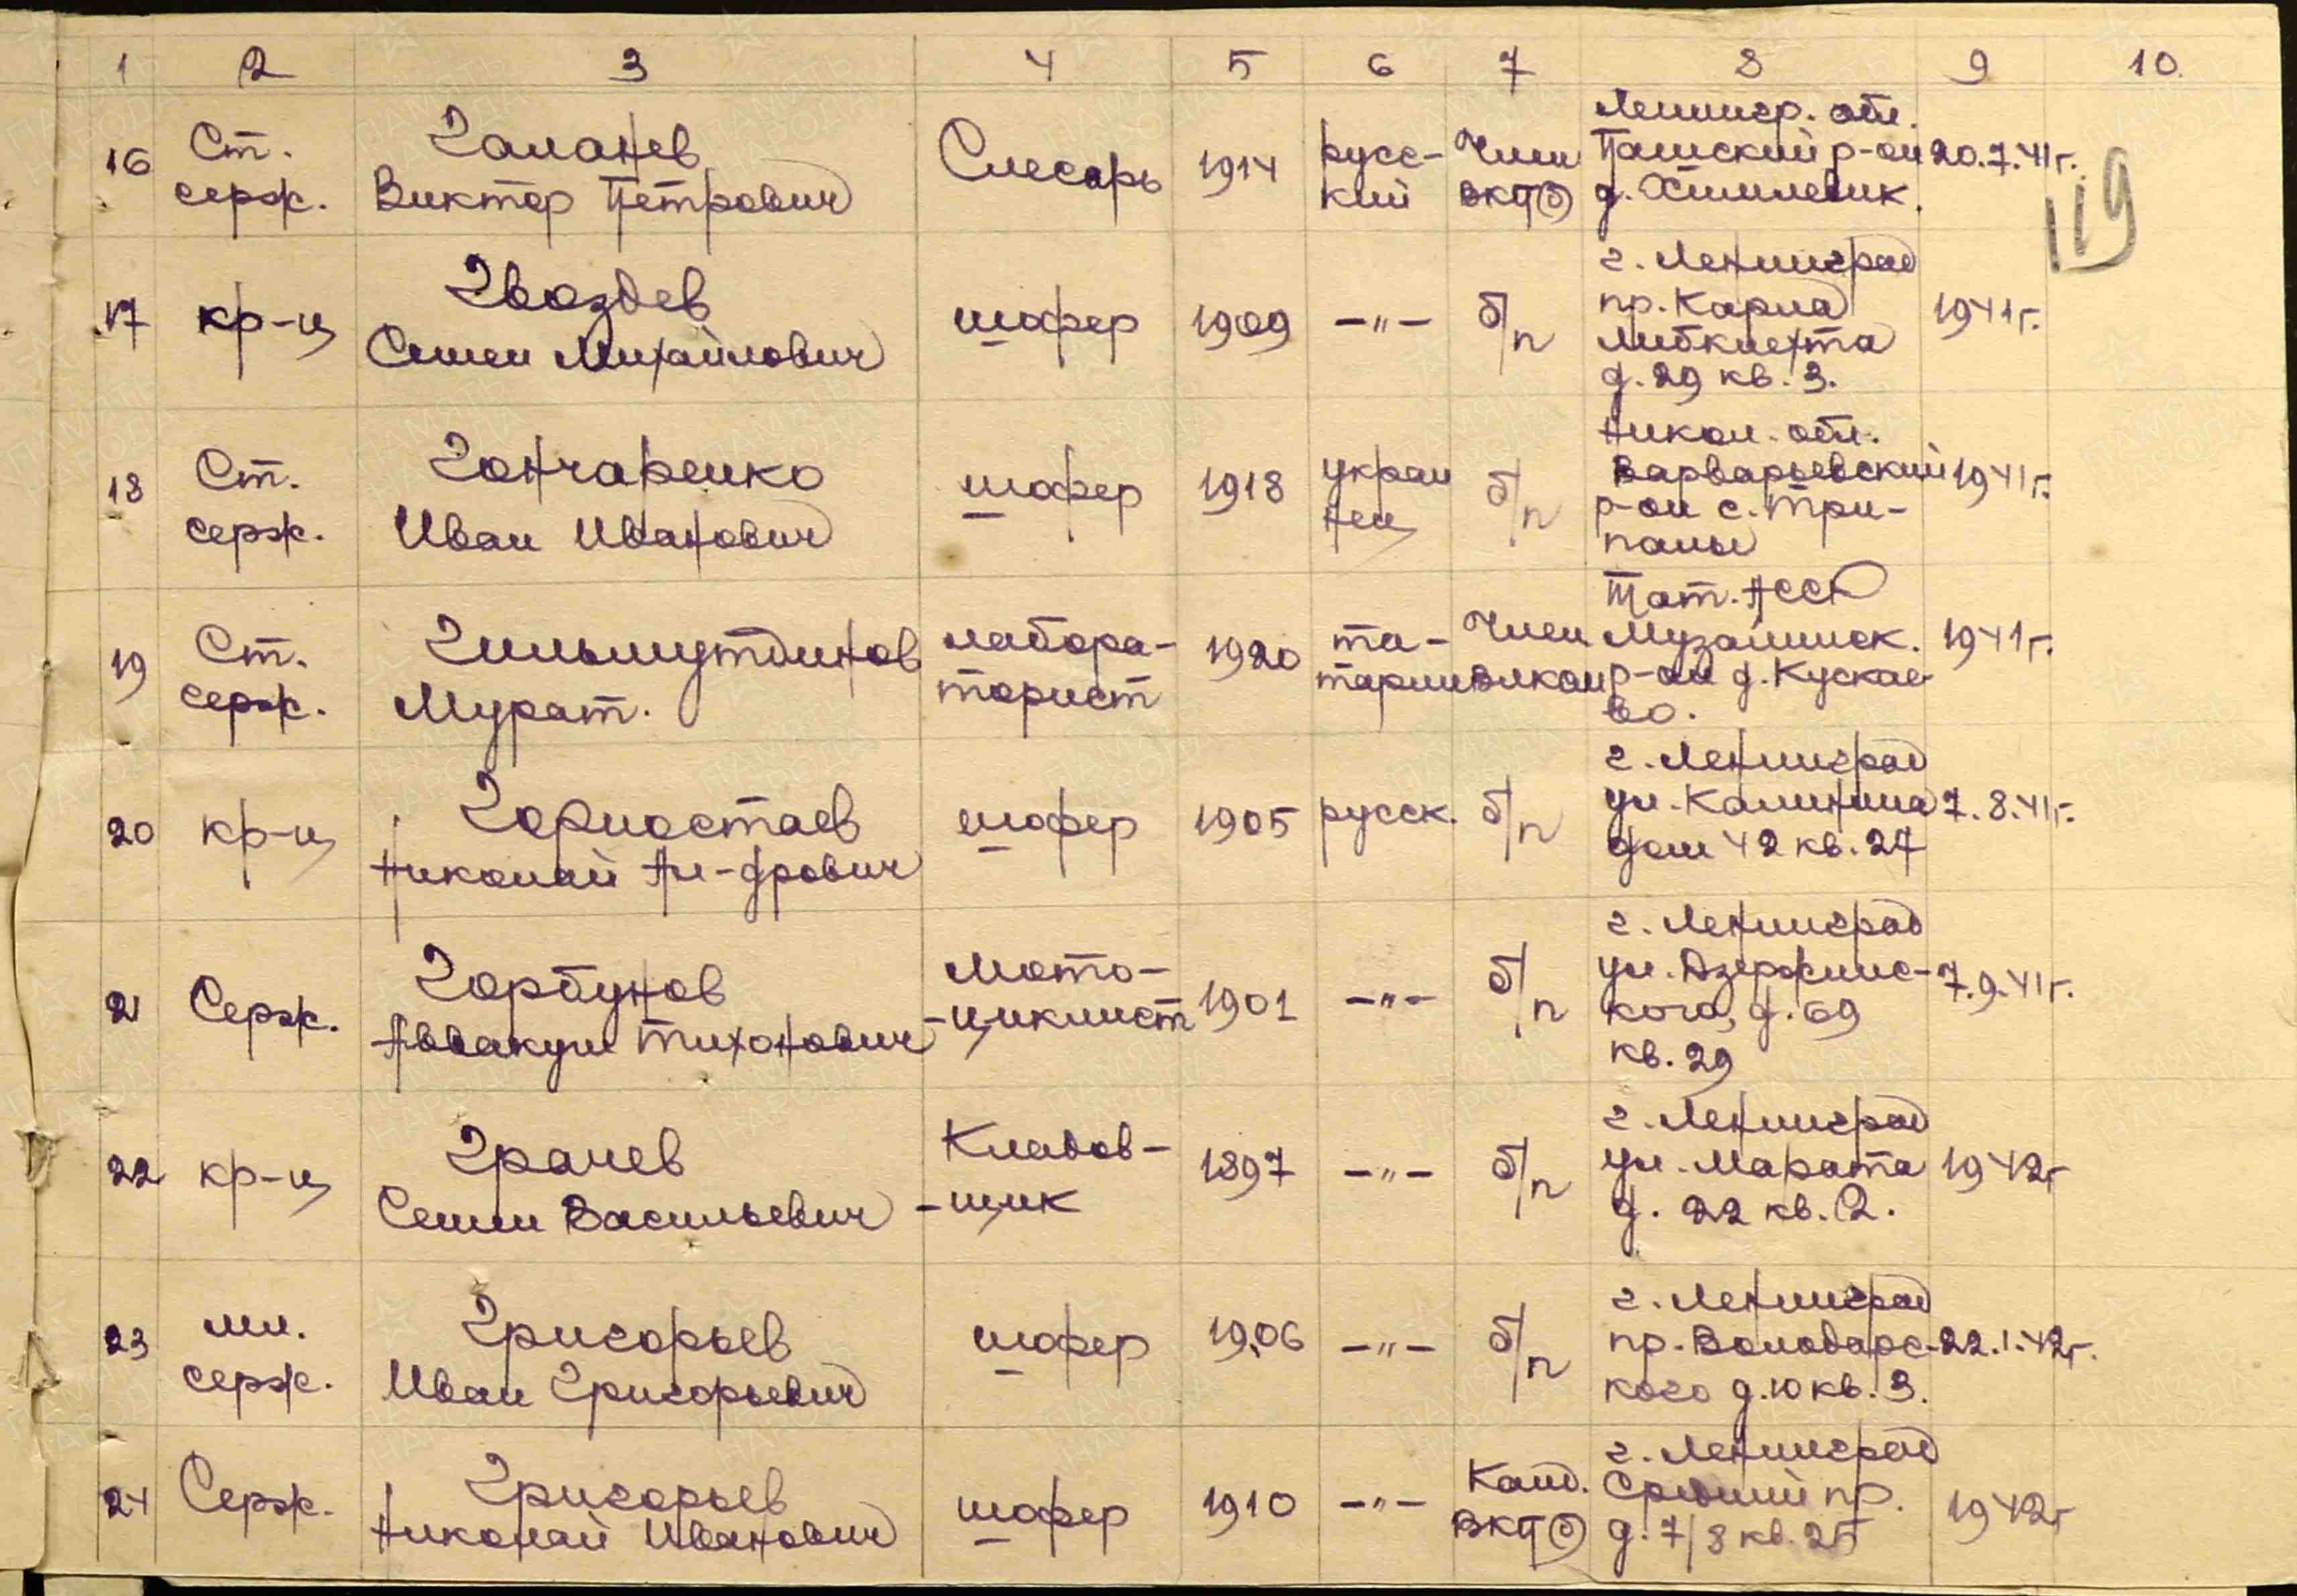 1 2 3 4 5 6 7 8 9 10.
119
16 Ст. серж.
Галанев
Виктор Петрович
Слесарь
1914
русс-
кий
Член
ВКП(б)
Ленингр. обл.
Пашский р-он
д.
20.7.41г.
17 кр-ц
Гвоздев
Семен Михайлович
шофер
1909
-"-
б/п
г. Ленинград
пр. Карла
Либкнехта
д. 29 кв. 3.
1941г.
18 Ст. серж.
Гончаренко
Иван Иванович
шофер
1918
украи
нец
б/п
Никол. обл.
Варварьевский
р-он с. Три-
1941г.
19 Ст. серж.
Гильмутдинов
Мурат.
лабора-
торист
1920
та-
тарин
Член
ВЛКСМ
Тат. АССР
р-он д. Кускае-
во.
1941г.
20 кр-ц
Горностаев
Николай Ал-дрович
шофер
1905
русск.
б/п
г. Ленинград
ул. Калинина
дом 42 кв. 27
7.8.41г.
21 Серж.
Горбунов
Аввакум Тихонович
Мото-
-циклист
1901
-"-
б/п
г. Ленинград
ул. Дзержинс-
кого, д. 69
кв. 29
7.9.41г.
22 кр-ц
Грачев
Семен Васильевич
Кладов-
-щик
1897
-"-
б/п
г. Ленинград
ул. Марата
д. 22 кв. 2.
1942г
23 мл. серж.
Григорьев
Иван Григорьевич
шофер
1906
-"-
б/п
г. Ленинград
пр. Володарс-
кого д. 10 кв. 3.
22.1.42г.
24 Серж.
Григорьев
Николай Иванович
шофер
1910
-"-
Канд.
ВКП(б)
г. Ленинград
Средний пр.
д. 7/8 кв. 25
1942г